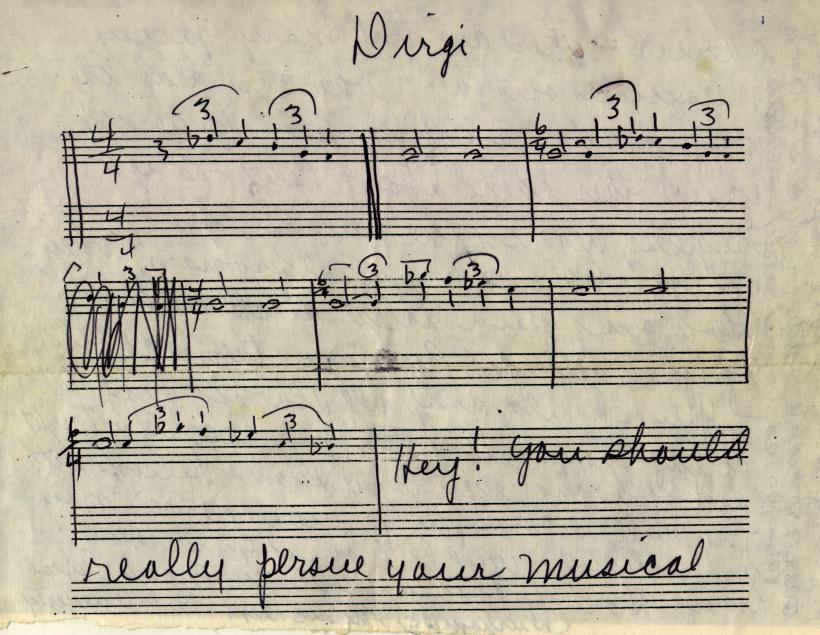 Dirgi
3 3 3 3
4/4 6/4
4/4
3 3 3
4/4 6/4
3 3
6/4
Hey! you should
really persue your musical